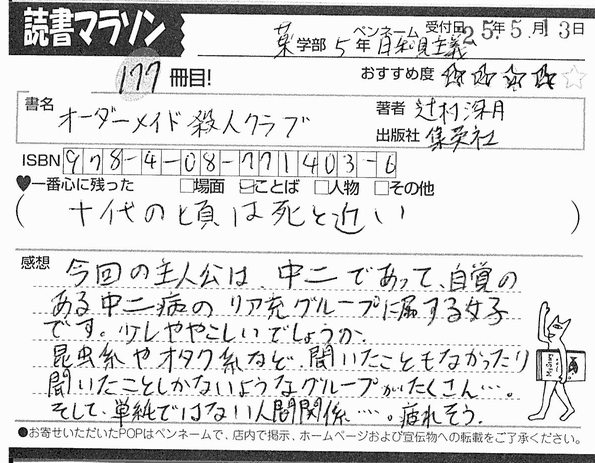 読書マラソン
薬学部 5年 ペンネーム 日和見主義 受付日 25年5月13日
177冊目! おすすめ度 ☆☆☆☆☆
書名 オーダーメイド殺人クラブ
著者 辻村深月
出版社 集英社
ISBN 978-4-08-771403-6
♥一番心に残った □場面 □ことば □人物 □その他
(十代の頃は死と近い)
感想 今回の主人公は、中二であって、自覚の
ある中二病のリア充グループに属する女子
です。少しややこしいでしょうか。
昆虫系やオタク系など、聞いたこともなかったり
聞いたことしかないようなグループがたくさん…。
そして、単純ではない人間関係…。疲れそう。
●お寄せいただいたPOPはペンネームで、店内で掲示、ホームページおよび宣伝物への転載をご了承ください。